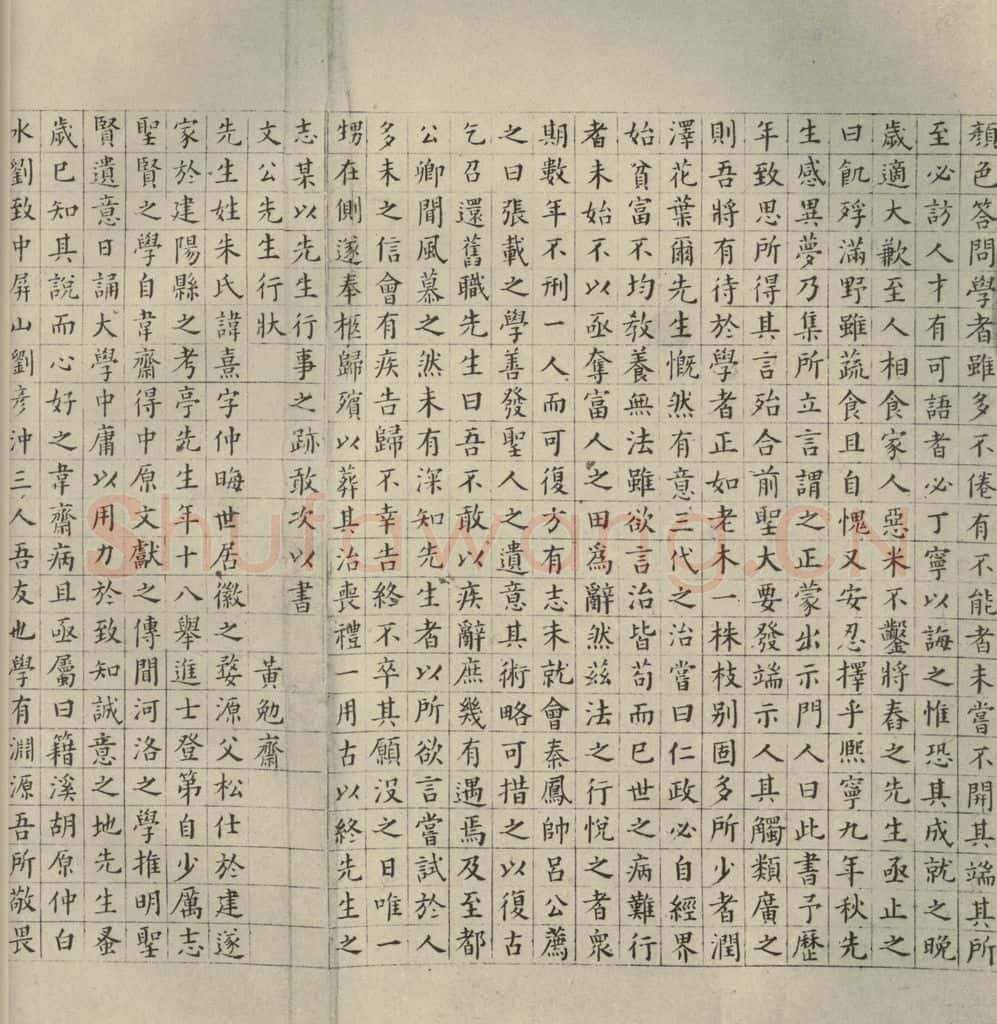 顏色答問學者雖多不倦有不能者未嘗不開其端其所
至必訪人才有可語者必丁寧以誨之惟恐其成就之晚
歲適大歉至人相食家人惡米不鑿將舂之先生亟止之
曰飢殍滿野雖蔬食且自愧又安忍擇乎熙寧九年秋先
生感異夢乃集所立言謂之正蒙出示門人曰此書予歷
年致思所得其言殆合前聖大要發端示人其觸類廣之
則吾將有待於學者正如老木一株枝别固多所少者潤
澤花葉爾先生慨然有意三代之治嘗曰仁政必自經界
始貧富不均教養無法雖欲言治皆苟而已世之病難行
者未始不以亟奪富人之田為辭然茲法之行悅之者衆
期數年不刑一人而可復方有志未就會秦鳳帥呂公薦
之曰張載之學善發聖人之遺意其術略可措之以復古
乞召還舊職先生曰吾不敢以疾辭庶幾有遇焉及至都
公卿聞風慕之然未有深知先生者以所欲言嘗試於人
多未之信會有疾告歸不幸告終不卒其願没之日唯一
甥在側遂奉柩歸殯以葬其治喪禮一用古以終先生之
志某以先生行事之跡敢次以書
文公先生行狀 黃勉齋
先生姓朱氏諱熹字仲晦世居徽之婺源父松仕於建遂
家於建陽縣之考亭先生年十八舉進士登第自少厲志
聖賢之學自韋齋得中原文獻之傳聞河洛之學推明聖
賢遺意日誦大學中庸以用力於致知誠意之地先生蚤
歲已知其說而心好之韋齋病且亟屬曰籍溪胡原仲白
水劉致中屏山劉彥沖三人吾友也學有淵源吾所敬畏
Shufawang.cn